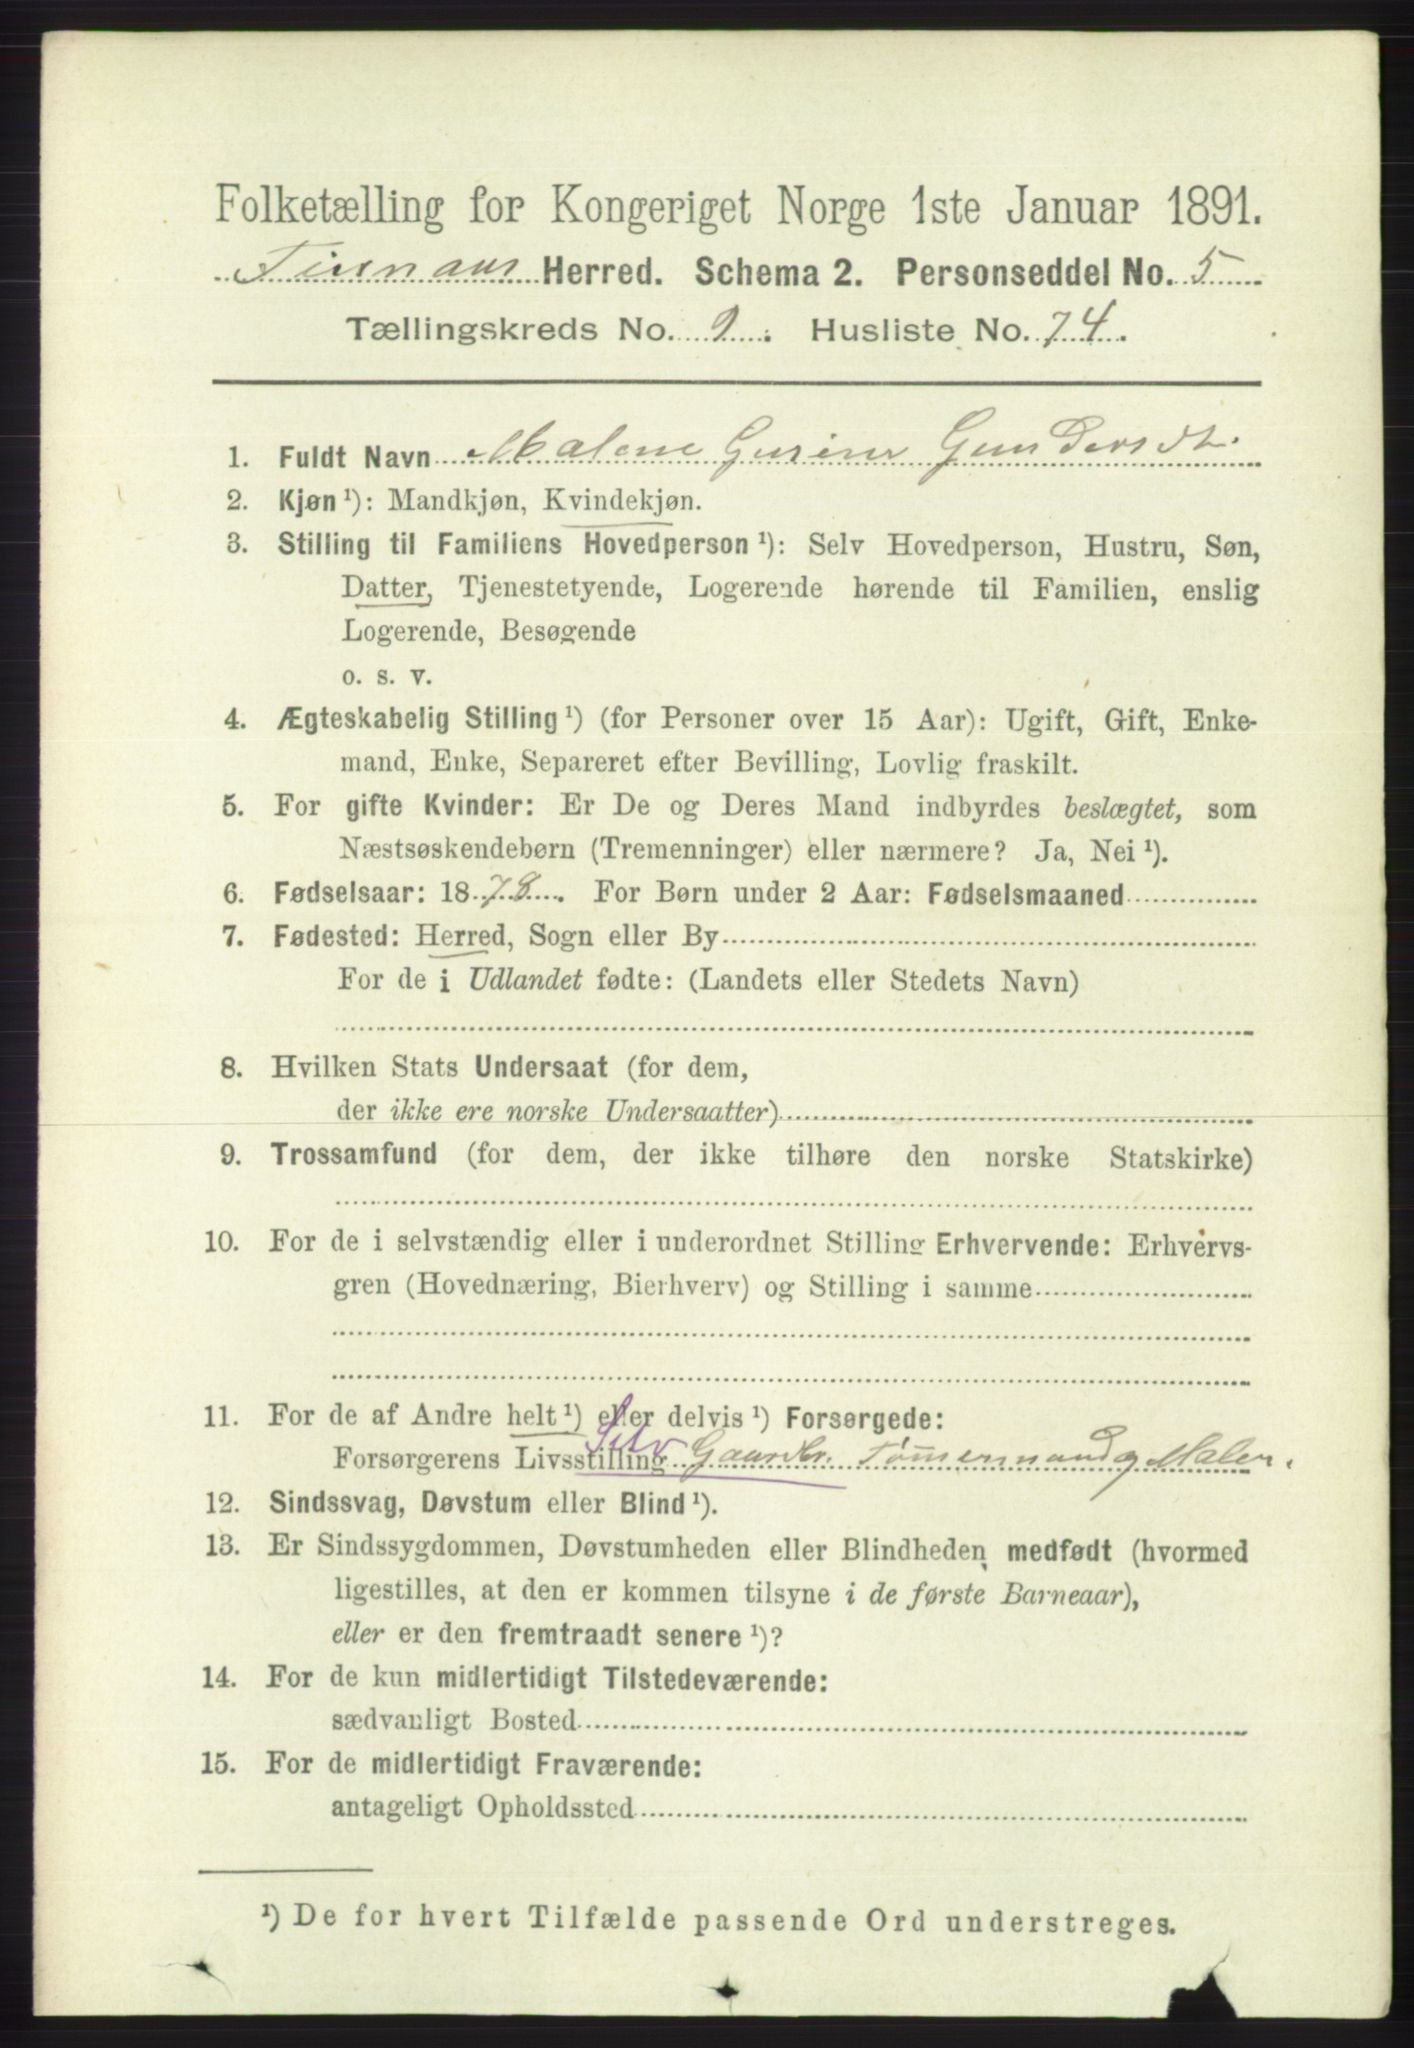 Folketælling for Kongeriget Norge 1ste Januar 1891.
Herred. Schema 2. Personseddel No. 5
Tællingskreds No. 9. Husliste No. 74.
1. Fuldt Navn Malene Gurine Gundersdt.
2. Kjøn ¹): Mandkjøn, Kvindekjøn.
3. Stilling til Familiens Hovedperson ¹): Selv Hovedperson, Hustru, Søn,
Datter, Tjenestetyende, Logerende hørende til Familien, enslig
Logerende, Besøgende
o. s. v.
4. Ægteskabelig Stilling ¹) (for Personer over 15 Aar): Ugift, Gift, Enke-
mand, Enke, Separeret efter Bevilling, Lovlig fraskilt.
5. For gifte Kvinder: Er De og Deres Mand indbyrdes beslægtet, som
Næstsøskendebørn (Tremenninger) eller nærmere? Ja, Nei ¹).
6. Fødselsaar: 1878. For Børn under 2 Aar: Fødselsmaaned
7. Fødested: Herred, Sogn eller By
For de i Udlandet fødte: (Landets eller Stedets Navn)
8. Hvilken Stats Undersaat (for dem,
der ikke ere norske Undersaatter)
9. Trossamfund (for dem, der ikke tilhøre den norske Statskirke)
10. For de i selvstændig eller i underordnet Stilling Erhvervende: Erhvervs-
gren (Hovednæring, Bierhverv) og Stilling i samme
11. For de af Andre helt ¹) eller delvis ¹) Forsørgede:
Forsørgerens Livsstilling Selv Gaardbr. Tømermand og Maler.
12. Sindssvag, Døvstum eller Blind ¹).
13. Er Sindssygdommen, Døvstumheden eller Blindheden medfødt (hvormed
ligestilles, at den er kommen tilsyne i de første Barneaar),
eller er den fremtraadt senere ¹)?
14. For de kun midlertidigt Tilstedeværende:
sædvanligt Bosted
15. For de midlertidigt Fraværende:
antageligt Opholdssted
¹) De for hvert Tilfælde passende Ord understreges.